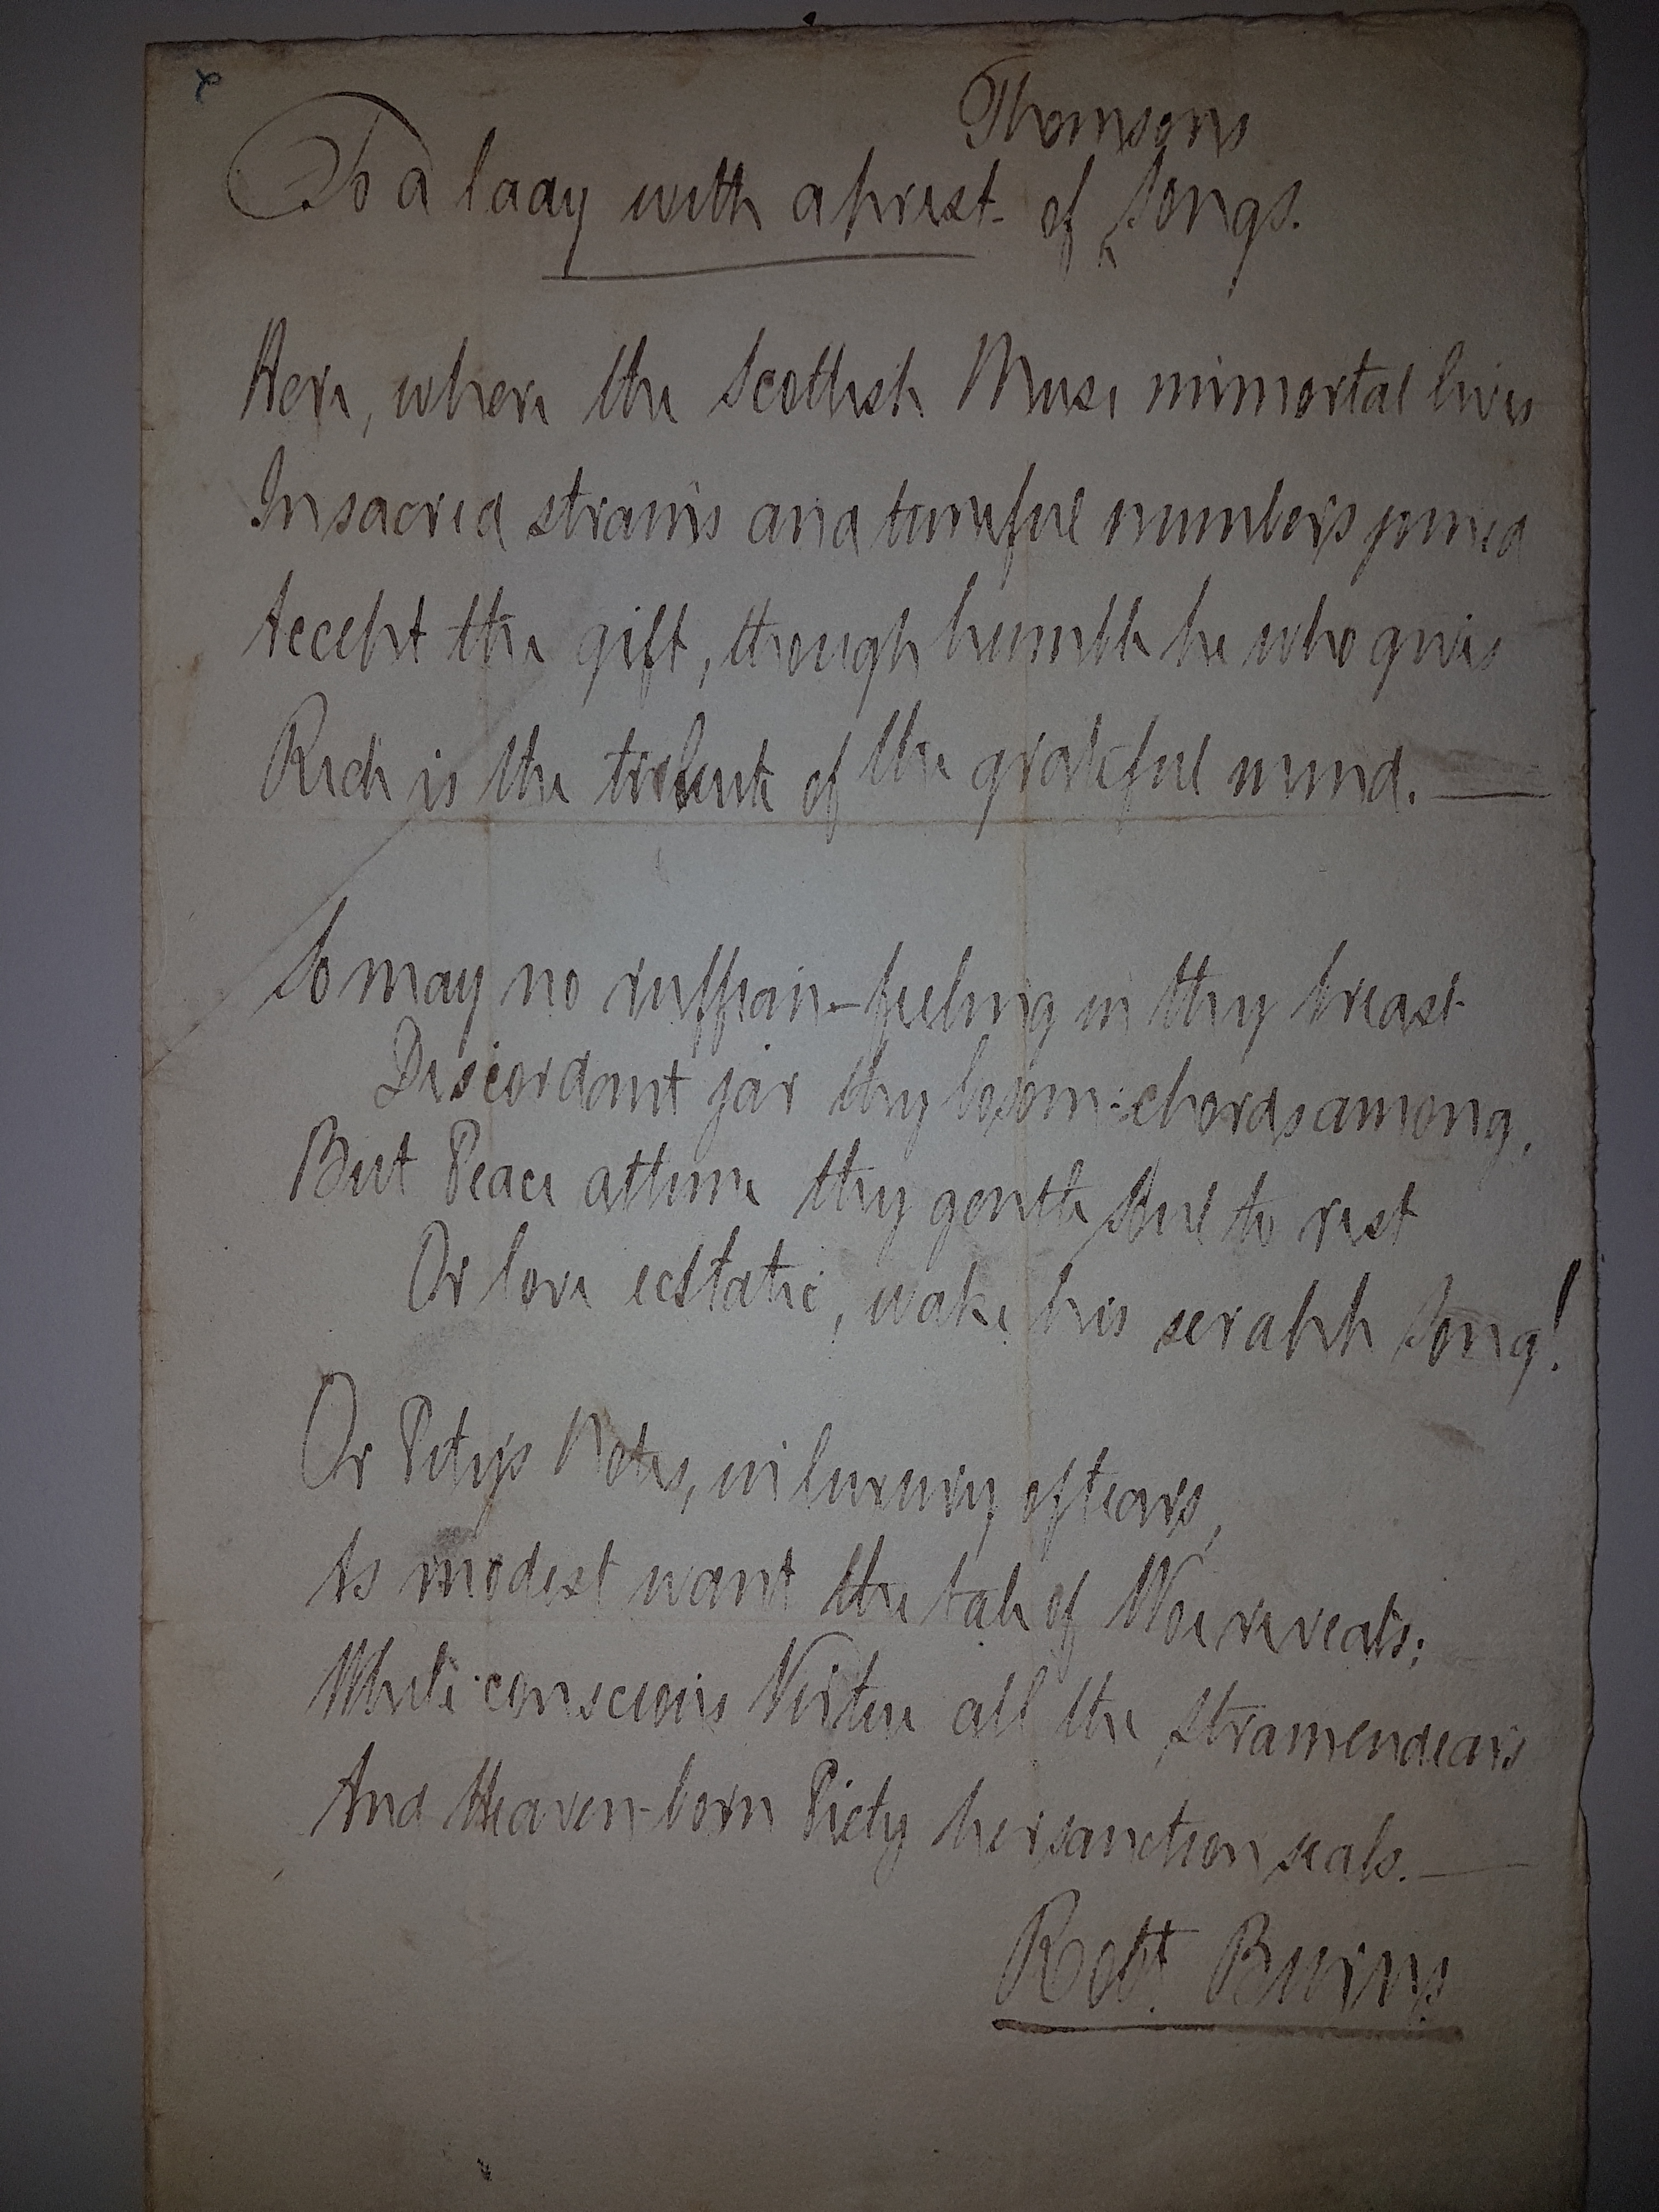 Thomsons
To a lady with a prest. of ‸ Songs.
Here, where the Scottish Muse immortal lives
In sacred strains and tuneful numbers joined
Accept the gift, though humble he who gives
Rich is the tribute of the grateful mind. —
So may no ruffian-feeling in thy breast
Discordant jar thy bosom-chords among,
But Peace attune thy gentle Soul to rest
Or love ecstatic, wake his seraph Song!
Or Pitys Notes, in luxury of tears,
As modest want the tale of Woe reveals;
While conscious Virtue all the strain endears
And Heaven-born Piety her sanction seals. —
Robt. Burns